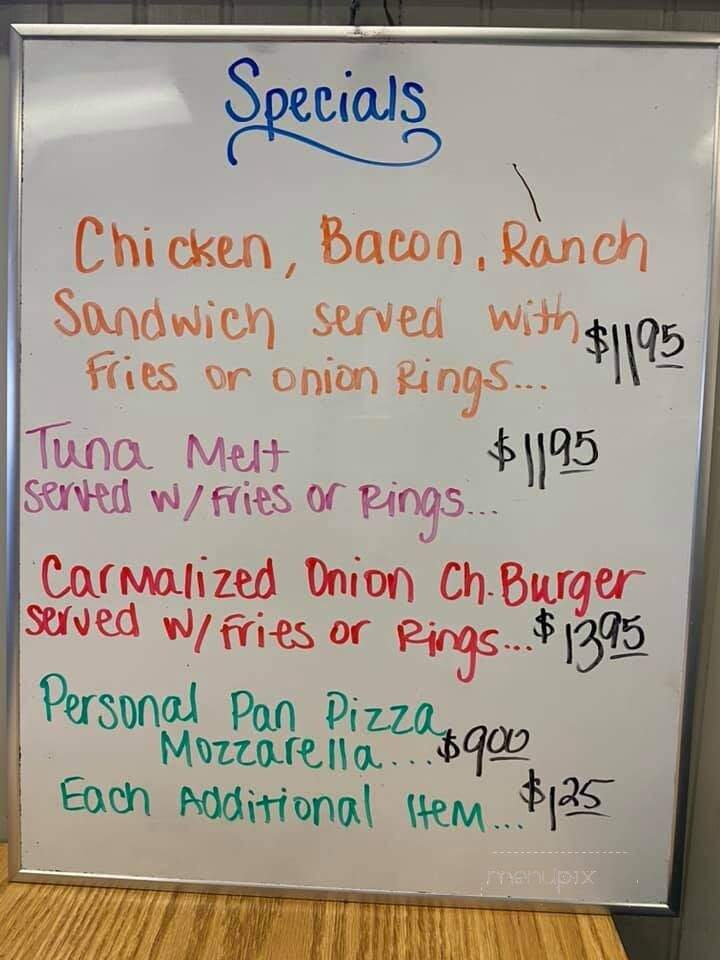 Specials
Chicken, Bacon, Ranch
Sandwich served with $11.95
Fries or onion Rings...
Tuna Melt $11.95
served w/ Fries or Rings...
Carmalized Onion Ch. Burger
served w/ Fries or Rings... $13.95
Personal Pan Pizza
Mozzarella.... $9.00
Each Additional Item... $1.25
menupix